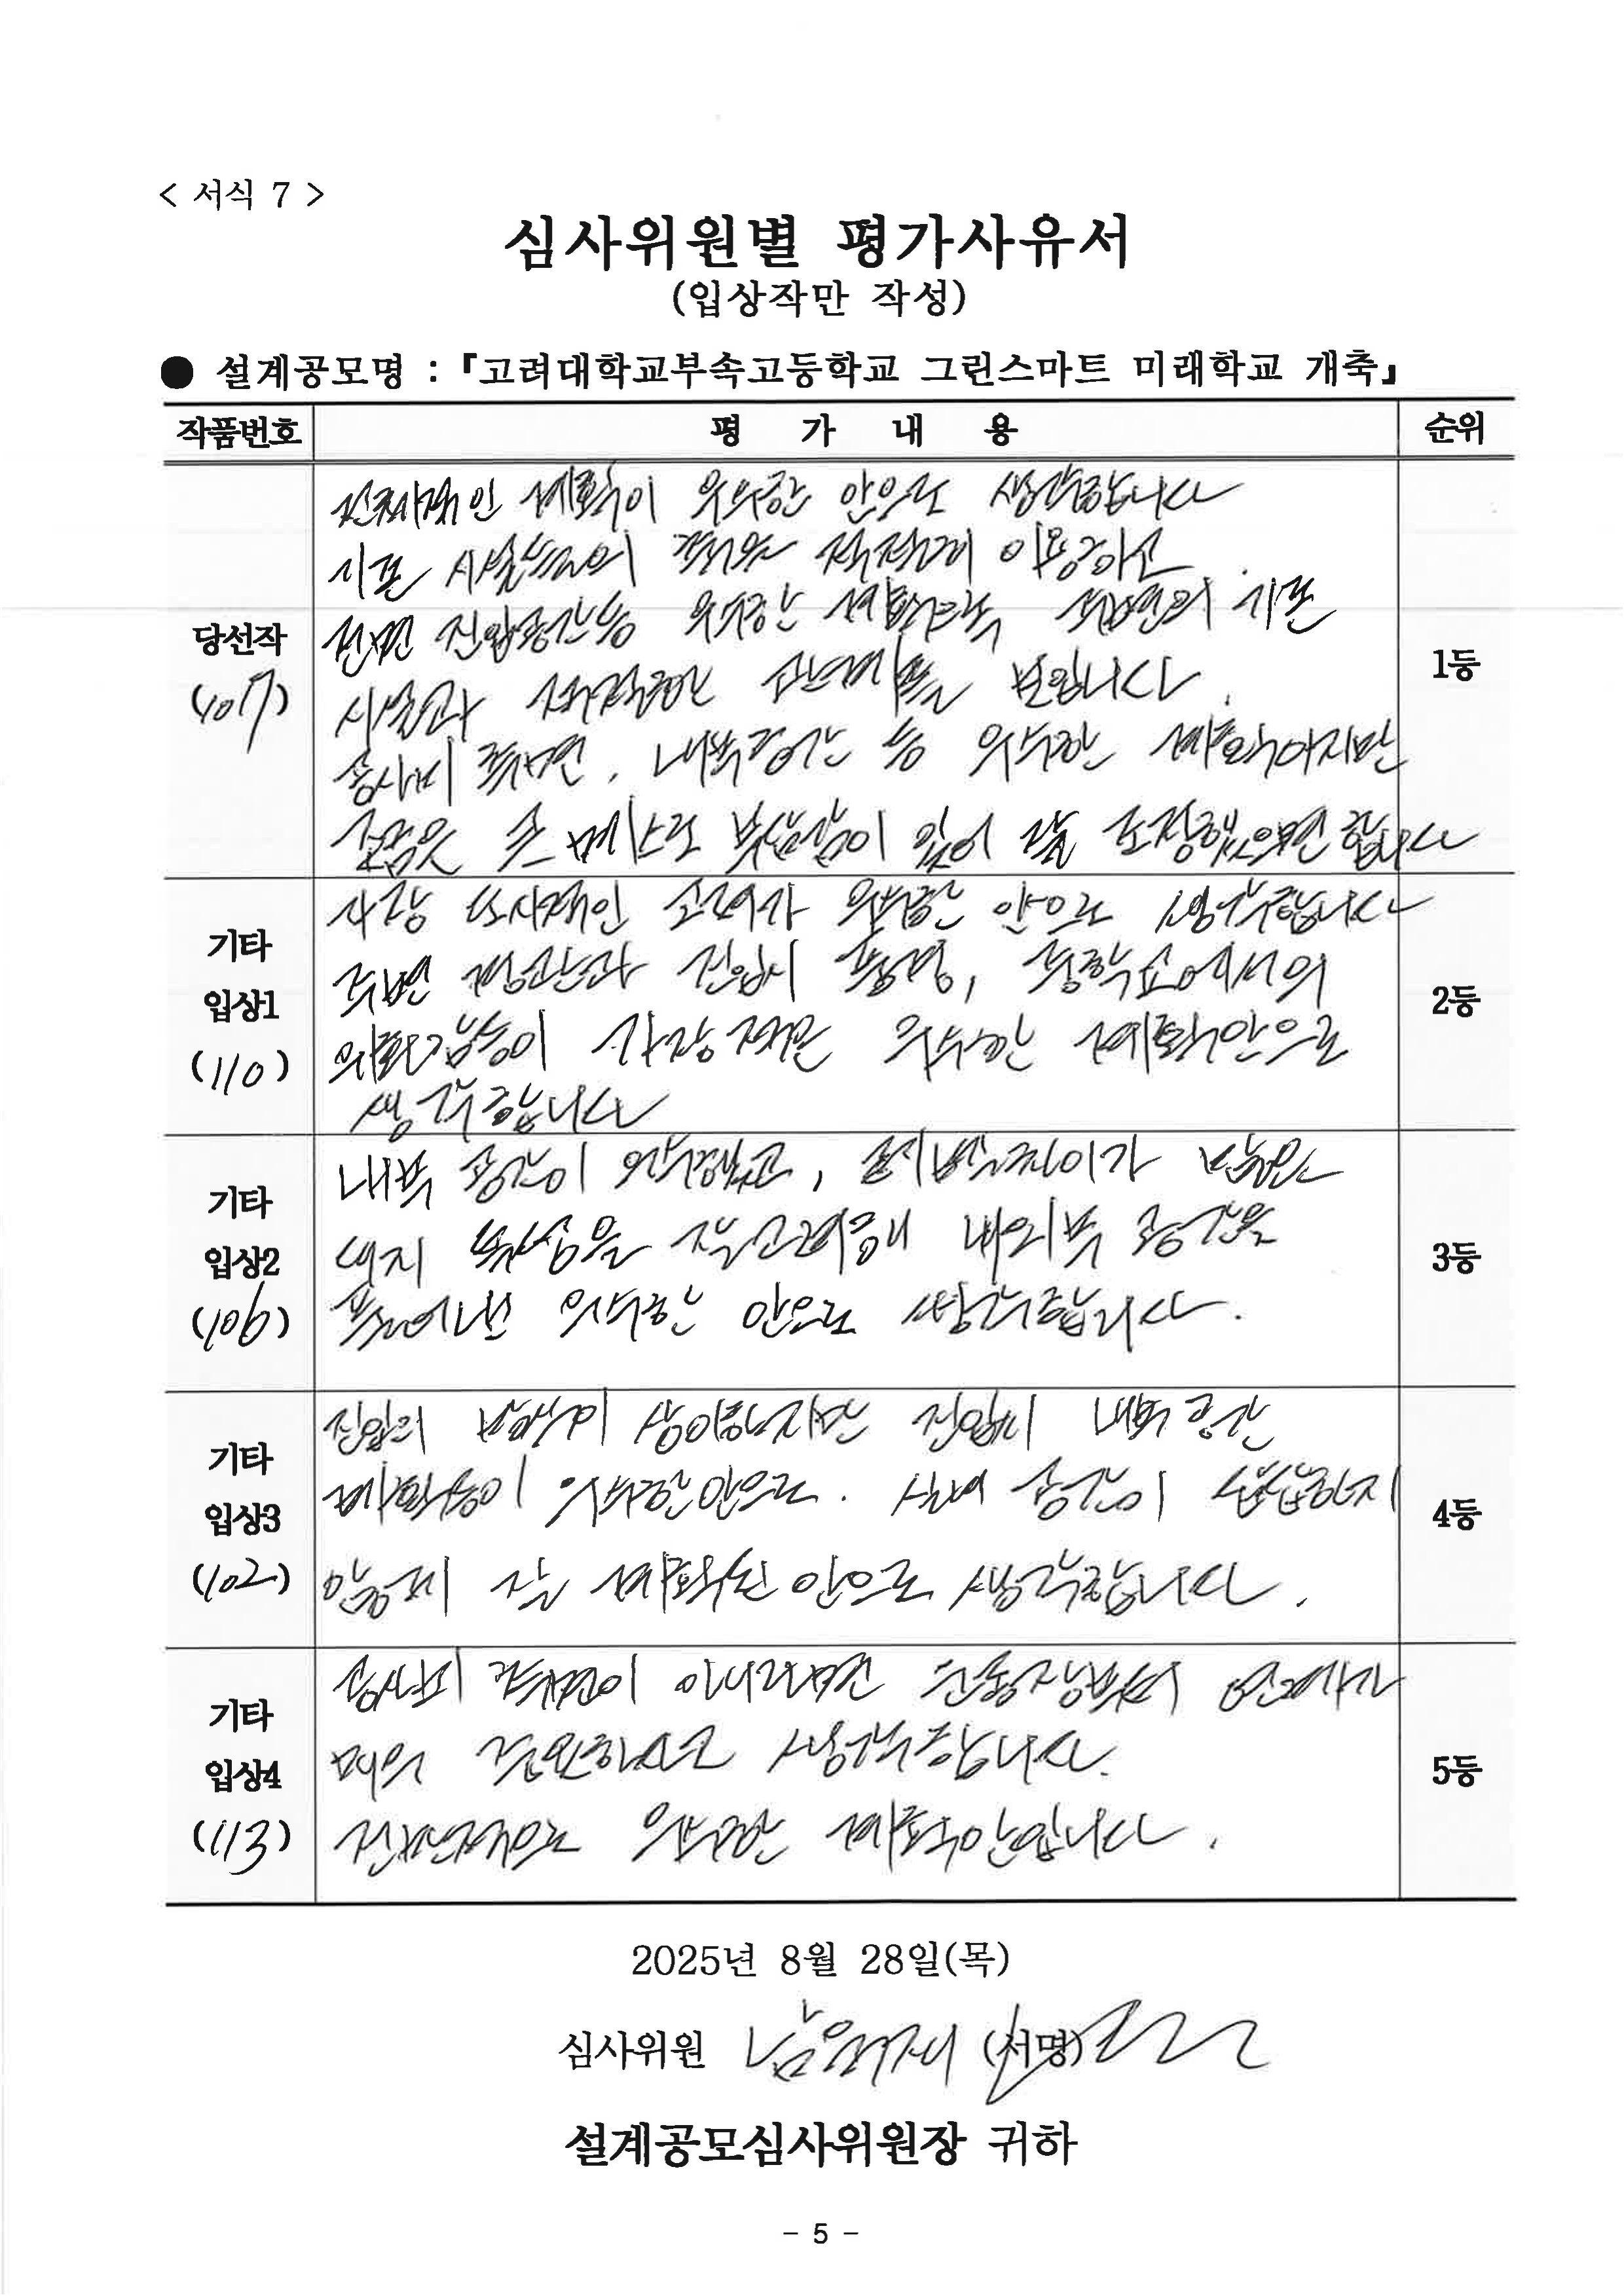 < 서식 7 >
심사위원별 평가사유서
(입상작만 작성)
● 설계공모명 : 『고려대학교부속고등학교 그린스마트 미래학교 개축』
작품번호 평 가 내 용 순위
당선작
(107)
전체적인 계획이 우수한 안으로 생각합니다
기존 시설등의 축을 적절히 이용하고
전면 진입공간등 우수한 계획으로 주변의 기존
시설과 적절한 관계를 보입니다.
공사비 측면, 내부공간 등 우수한 계획이지만
큰 매스로 부담감이 있어 잘 조정했으면 합니다
1등
기타
입상1
(110)
가장 인상적인 고려가 우수한 안으로 생각합니다
주변 경관과 진입시 풍경, 중학교에서의
위화감등이 가장 적은 우수한 계획안으로
생각합니다
2등
기타
입상2
(106)
내부 공간이 우수했고, 레벨차이가 나는
대지 특성을 잘 고려해 내외부 공간을
풀어낸 우수한 안으로 생각합니다.
3등
기타
입상3
(102)
진입의 방향이 상이하지만 진입시 내부 공간
계획등이 우수한 안으로. 실내 공간이 답답하지
않게 잘 계획된 안으로 생각합니다.
4등
기타
입상4
(113)
공사비 측면이 아니라면 운동장부의 연계가
매우 중요하다고 생각합니다.
전반적으로 우수한 계획안입니다.
5등
2025년 8월 28일(목)
심사위원 (서명)
설계공모심사위원장 귀하
- 5 -